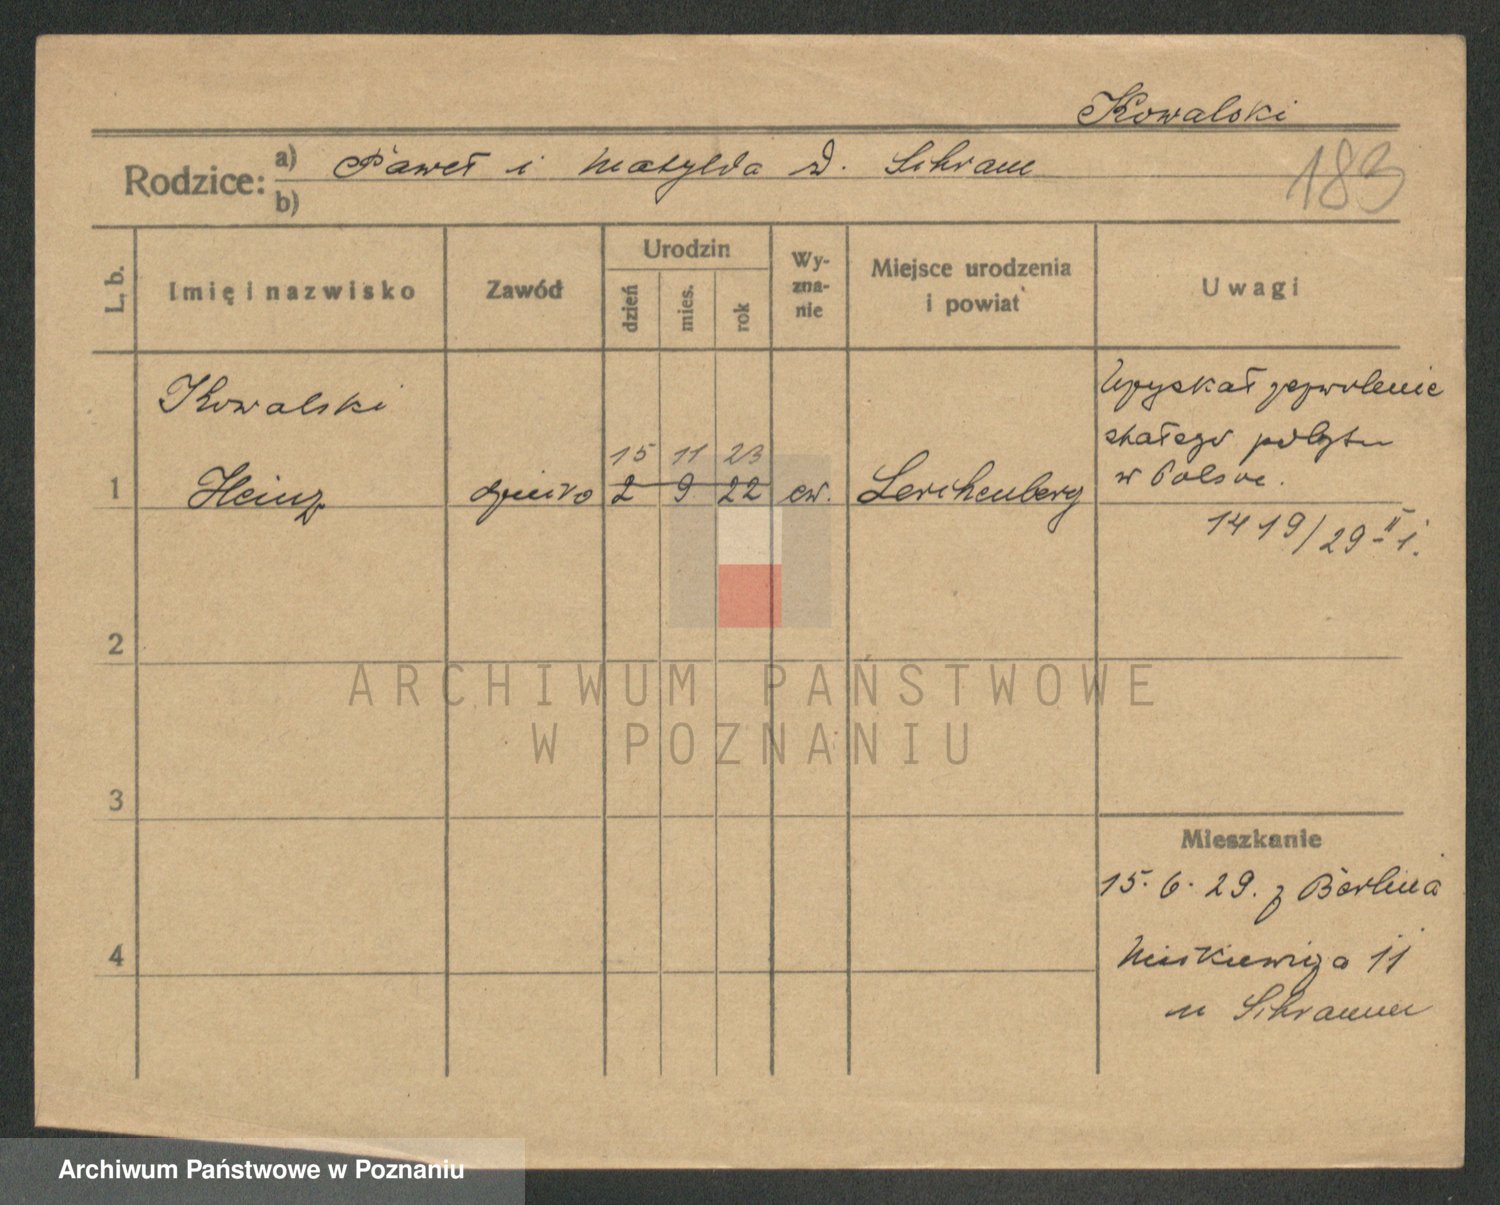 Kowalski
Rodzice: a) Paweł i Matylda d. Schram
b)
183
L. b.
Imię i nazwisko
Zawód
Urodzin
dzień
mies.
rok
Wy-
zna-
nie
Miejsce urodzenia
i powiat
Uwagi
Kowalski
15 11 23
1 Heinz dziecko 2 9 22 ew. Lerchenberg
Uzyskał zezwolenie
stałego pobytu
w Polsce.
1419/29 II i.
2
3
4
Mieszkanie
15.6.29. z Berlina
Mickiewicza 11
u Schramm
ARCHIWUM PAŃSTWOWE
W POZNANIU
Archiwum Państwowe w Poznaniu